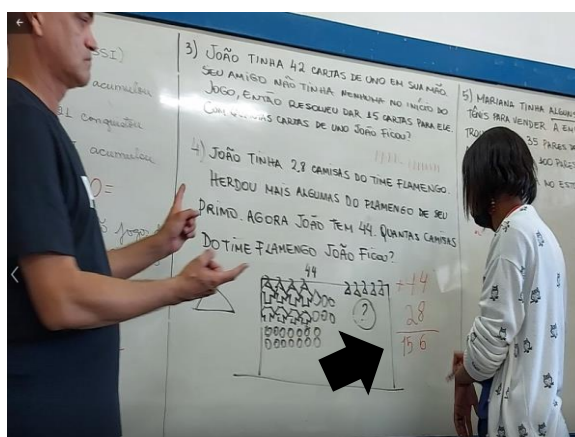 SSI)
acumulou
conquistou
acumulou
0=
jogo
3) JOÃO TINHA 42 CARTAS DE UNO EM SUA MÃO
SEU AMIGO NÃO TINHA NENHUMA NO INÍCIO DO
JOGO, ENTÃO RESOLVEU DAR 15 CARTAS PARA ELE.
COM CARTAS DE UNO JOÃO FICOU?
4) JOÃO TINHA 28 CAMISAS DO TIME FLAMENGO.
HERDOU MAIS ALGUMAS DO FLAMENGO DE SEU
PRIMO. AGORA JOÃO TEM 44. QUANTAS CAMISAS
DO TIME FLAMENGO JOÃO FICOU?
44
?
28
156
5) MARIANA TINHA
TÊNIS PARA VENDER A EM
35 PARES D
300 PARES
NO EST